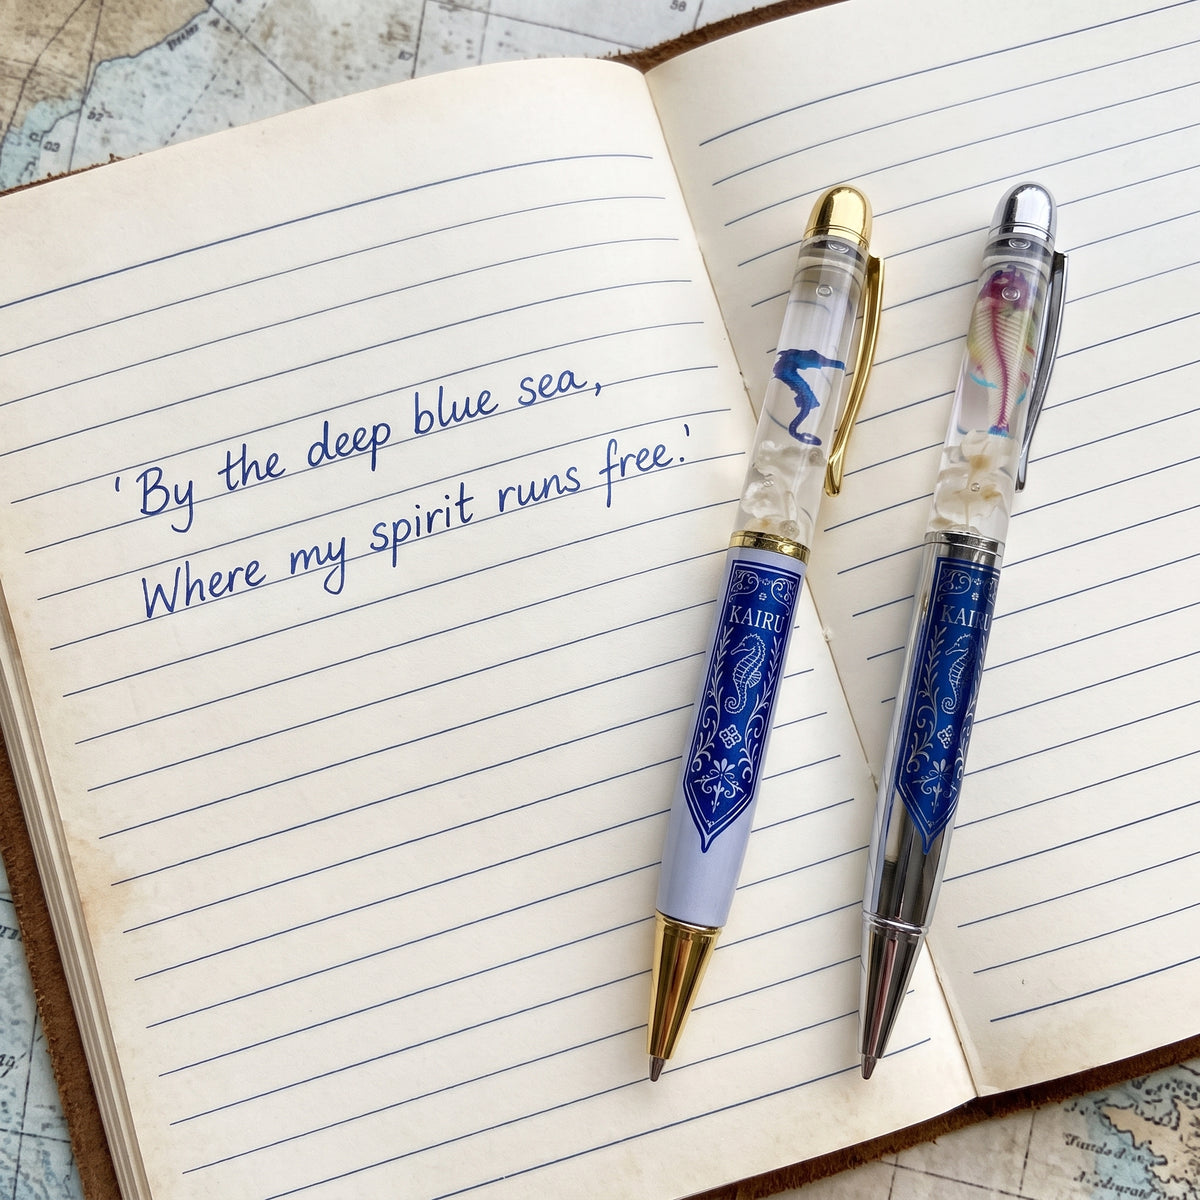 'By the deep blue sea,
Where my spirit runs free.'
KAIRU
KAIRU